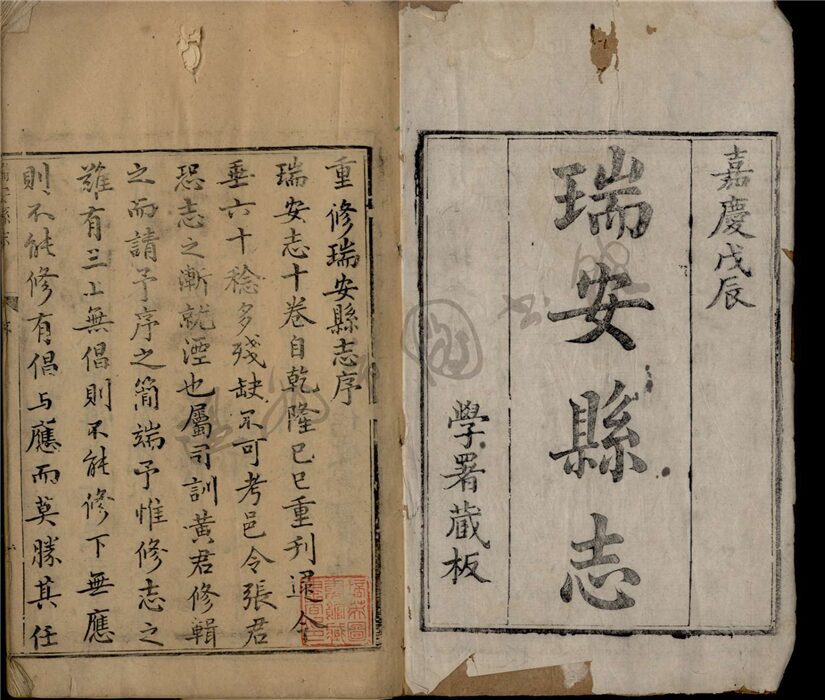 嘉慶戊辰
瑞安縣志
學署蔵板
重修瑞安縣志序
瑞安志十卷自乾隆己巳重刊迄今
垂六十稔多殘缺不可考邑令張君
恐志之漸就湮也屬司訓黄君修輯
之而請予序之簡端予惟修志之
難有三上無倡則不能修下無應
則不能修有倡与應而莫勝其任